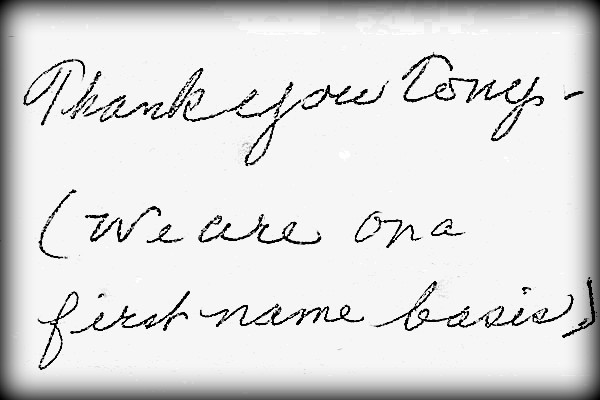 Thank you Tony -
(We are on a
first name basis)